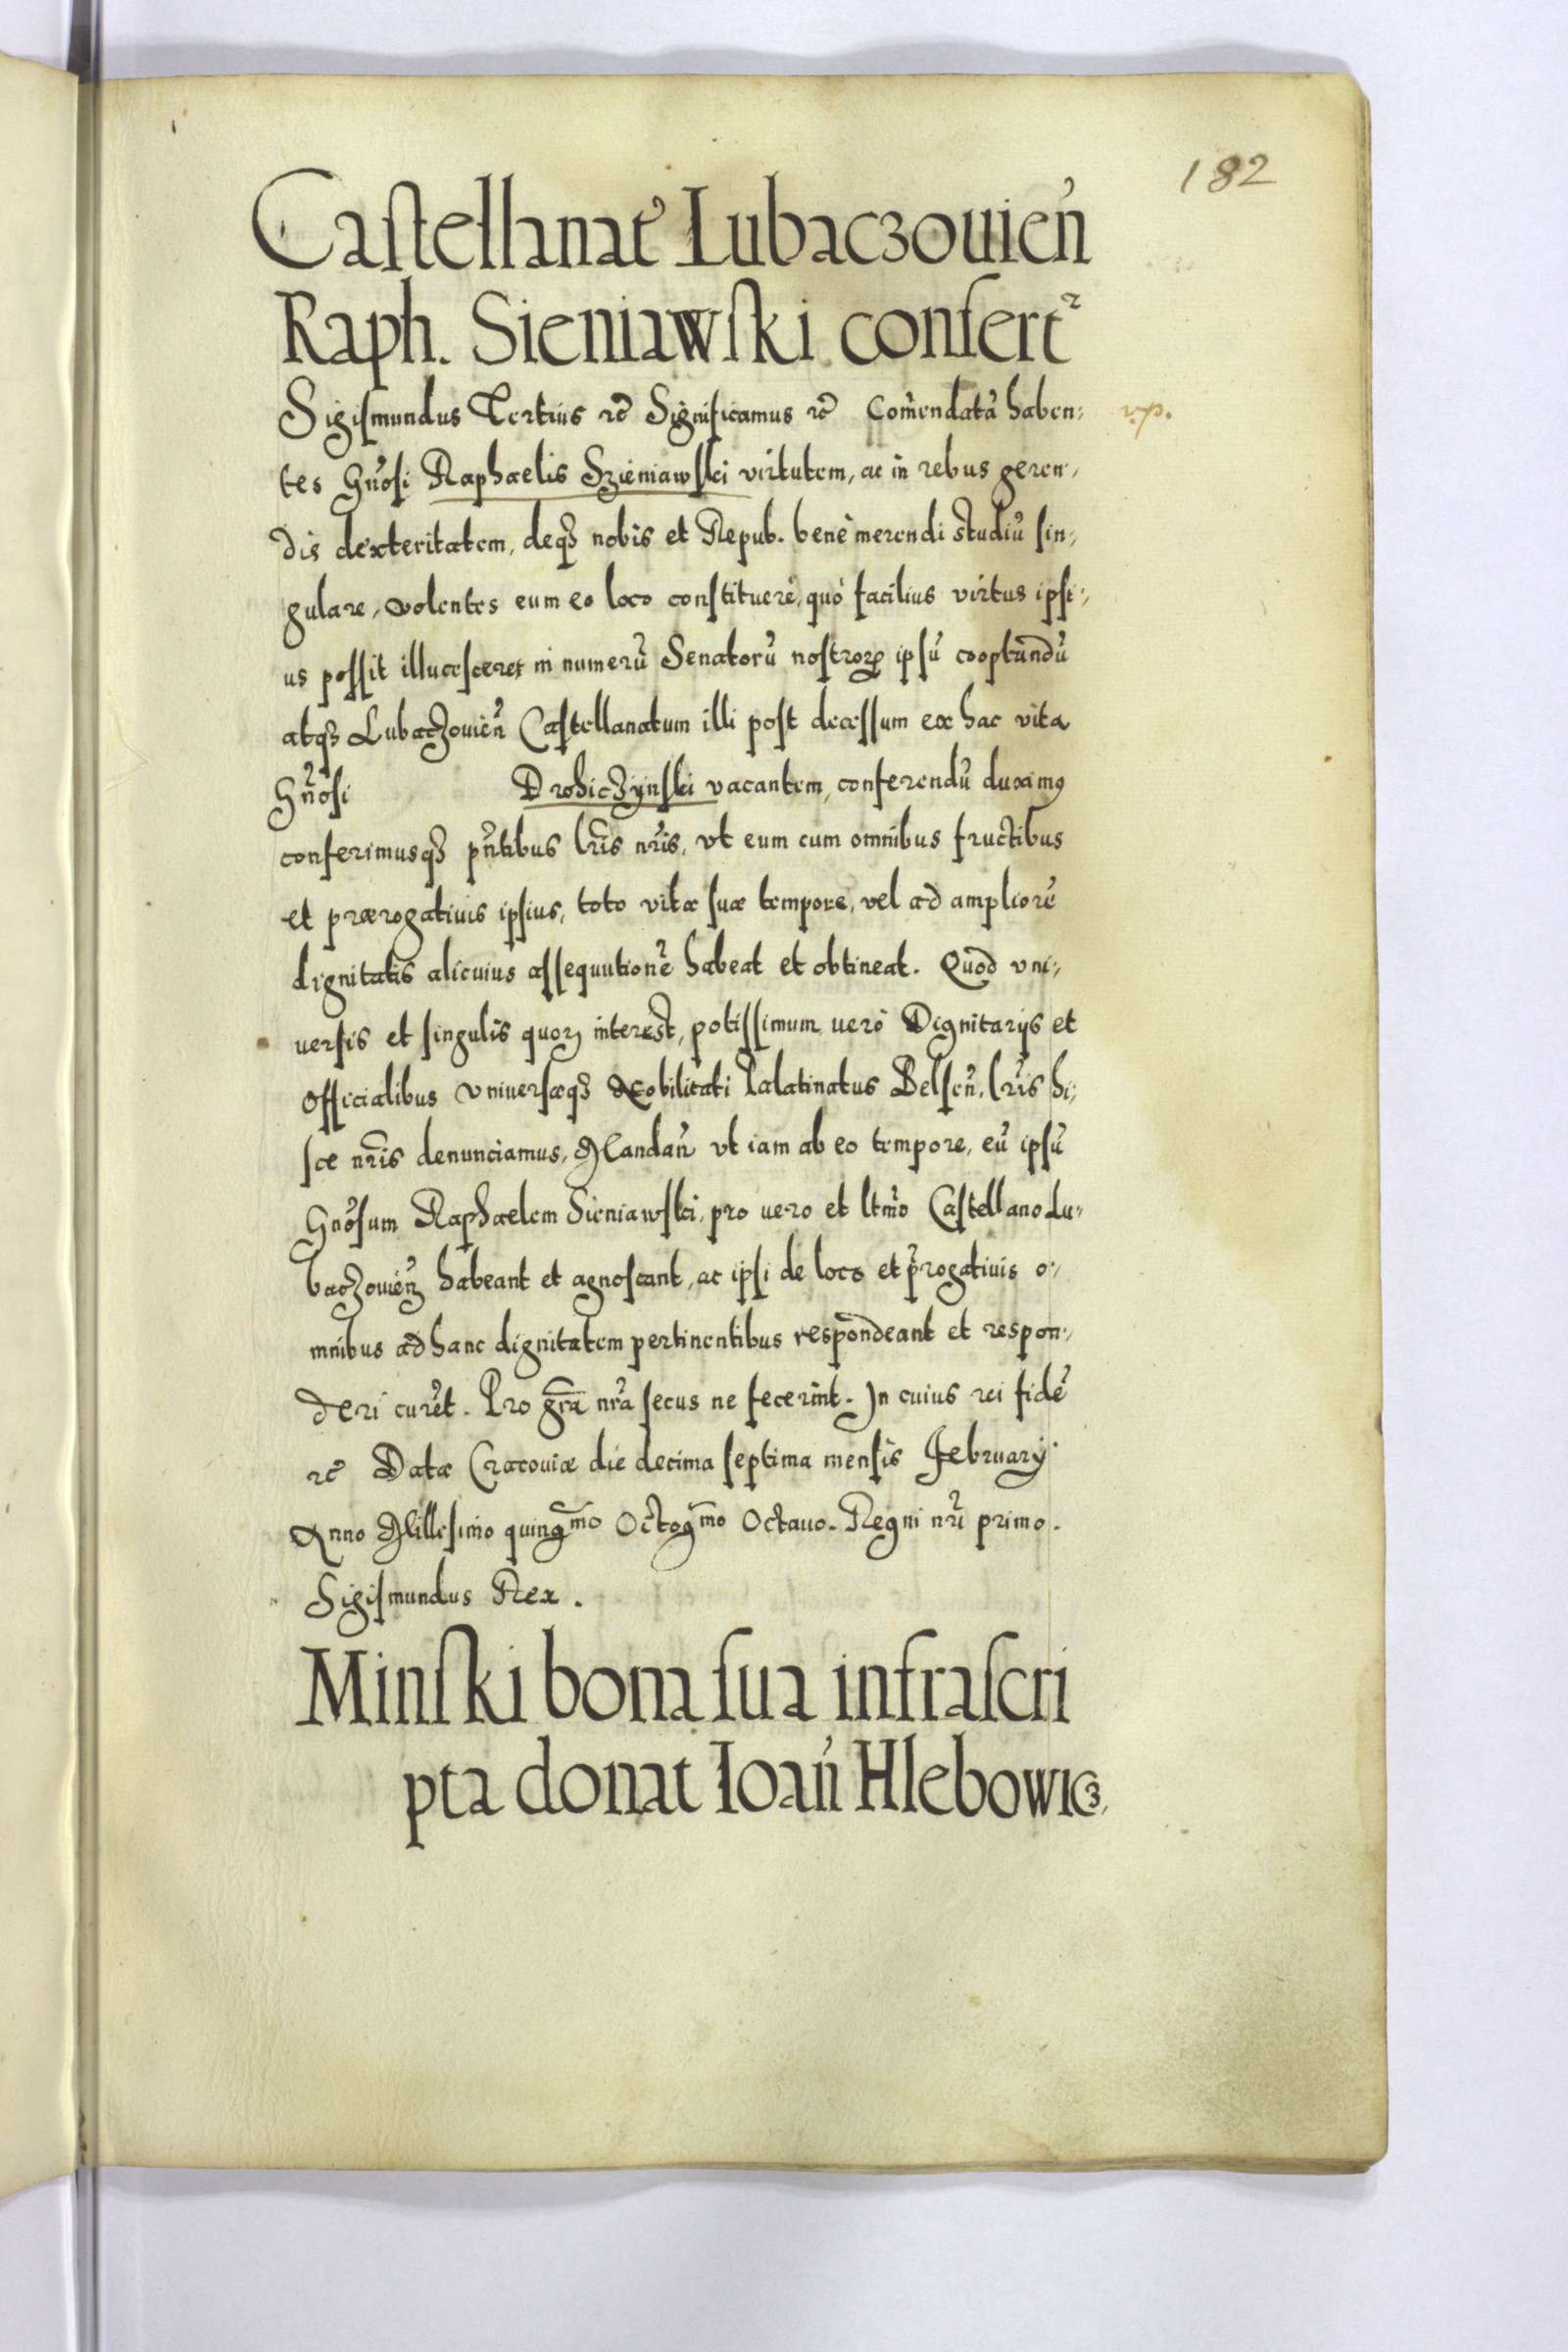 182
Castellanat Lubaczouień
Raph. Sieniawski confert
Sigismundus Tertius rc̃ Significamus rc̃ Com̃endatã haben:
v.p.
tes Gñosi Raphaelis Szieniawski virtutem, ac in rebus geren,
dis dexteritatem, deqꝫ nobis et Repub. benè merendi studiũ sin,
gulare, volentes eum eo loco constituere, quò facilius virtus ipsi,
us possit illucescere, in numerũ Senatorũ nostrorꝝ ipsũ cooptandũ
atqꝫ Lubaczouieñ Castellanatum illi post decessum ex hac vita
Gñosi Drohiczÿnski vacantem, conferendũ duximꝰ
conferimusqꝫ pñtibus lr̃is nr̃is, vt eum cum omnibus fructibus
et prærogatiuis ipsius, toto vitæ suæ tempore, vel ad ampliorẽ
dignitatis alicuius assequutionẽ habeat et obtineat. Quod vni,
uersis et singulis quorꝝ interest, potissimum uerò Dignitarijs et
Officialibus vniuersæqꝫ Nobilitati Palatinatus Belseñ, lr̃is hi,
sce nr̃is denunciamus, Mandañ vt iam ab eo tempore, eũ ipsũ
Gñosum Raphaelem Sieniawski, pro uero et ltm̃o Castellano Lu,
baczouieñ habeant et agnoscant, ac ipsi de loco et p̃rogatiuis o,
mnibus ad hanc dignitatem pertinentibus respondeant et respon,
deri curẽt. Pro grã nr̃a secus ne fecerint. In cuius rei fidẽ
rc̃ Datæ Cracouiæ die decima septima mensis February
Anno Millesimo quingmo Octogmo Octauo. Regni nr̃i primo.
Sigismundus Rex.
Minski bona sua infrascri
pta donat Ioañ Hlebowicz,